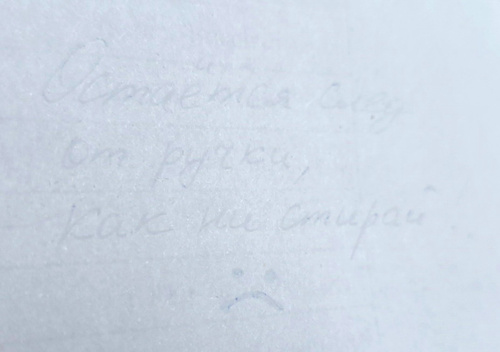 Остаётся след
от ручки,
как ни стирай